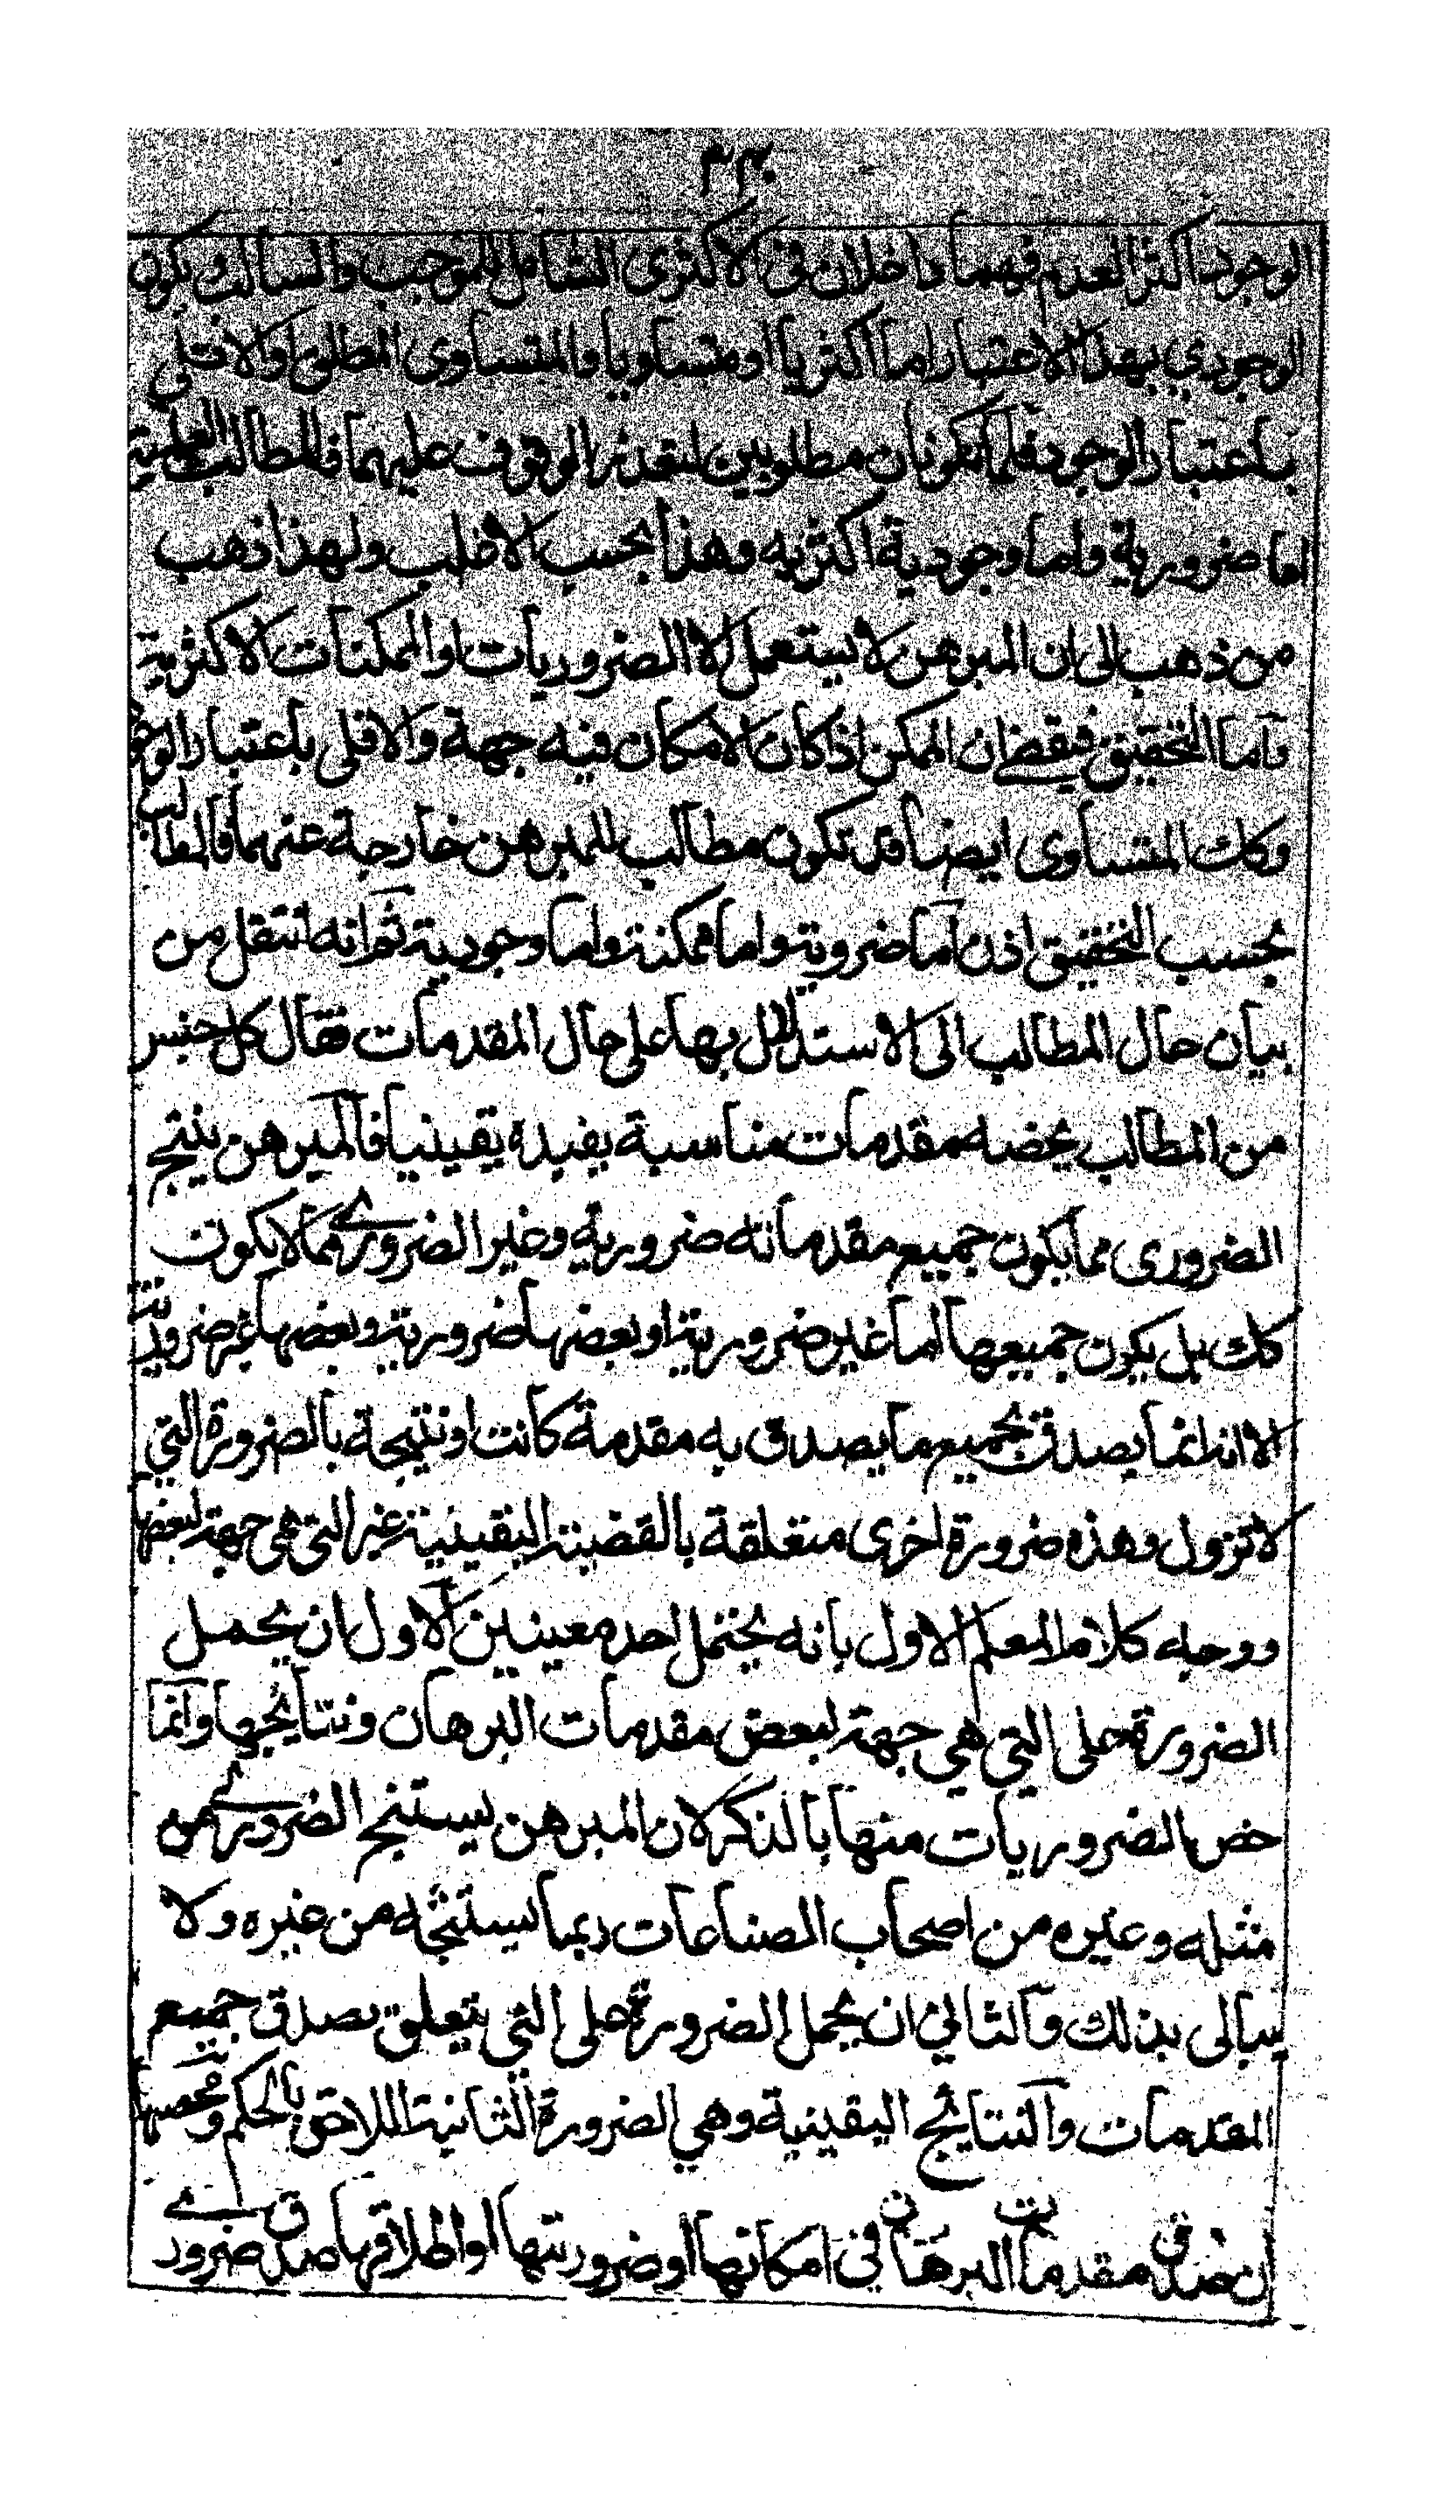 الوجود اكثر العدم فهما داخلان فى الاكثرى الشامل للموجب والسالب ويكون
الوجودي بهذا الاعتبار اما اكثريا او متساويا والمتساوى المطلق او الاقلى
باعتبار الوجود فلما يكونان مطلوبين لتعذر الوقوف عليهما فالمطالب العلمية
اما ضرورية واما وجودية اكثريه وهذا بحسب الاغلب ولهذا ذهب
من ذهب الى ان المبرهن لا يستعمل الا الضروريات او الممكنات الاكثرية
واما التحقيق فيقضے ان الممكن اذ كان الامكان فيه جهة والاقلى باعتبار الوجو
وكك المتساوى ايضا قد تكون مطالب للمبرهن خارجة عنهما فالمطالب
بحسب التحقيق اذن اما ضروية واما ممكنة واما وجودية ثم انه انتقل من
بيان حال المطالب الى الاستدلال بها على حال المقدمات فقال كل جنس
من المطالب يخضه مقدمات مناسبة يفيده يقينيا فالمبرهن ينتج
الضرورى مما يكون جميع مقدماته ضرورية وغير الضرورے مما لا يكون
كك بل يكون جميعها اما غير ضرورية او بعضها ضرورية وبعضها غير ضرورية
الا انه انما يصدق بجميع ما يصدق به مقدمة كانت او نتيجة بالضرورة التي
لا تزول وهذه ضرورة اخرى متعلقة بالقضية اليقينية غير التى هى جهة لبعضها
ووجه كلام المعلم الاول بانه يحتمل احد معينين الاول ان يحمل
الضرورة على التي هي جهة لبعض مقدمات البرهان ونتايجها وانما
خص الضروريات منها بالذكر لان المبرهن يستنتج الضرورے من
مثله وغيره من اصحاب الصناعات ربما يستنتجه من غيره ولا
يبالى بذلك والثاني ان يحمل الضرورة على التي يتعلق بصدق جميع
المقدمات والنتايج اليقينية وهي الضرورة الثانية اللاحق بالحكم
ان صدق مقدمات البرهان في امكانها او ضرورتها او اطلاقها صدق ضرورے